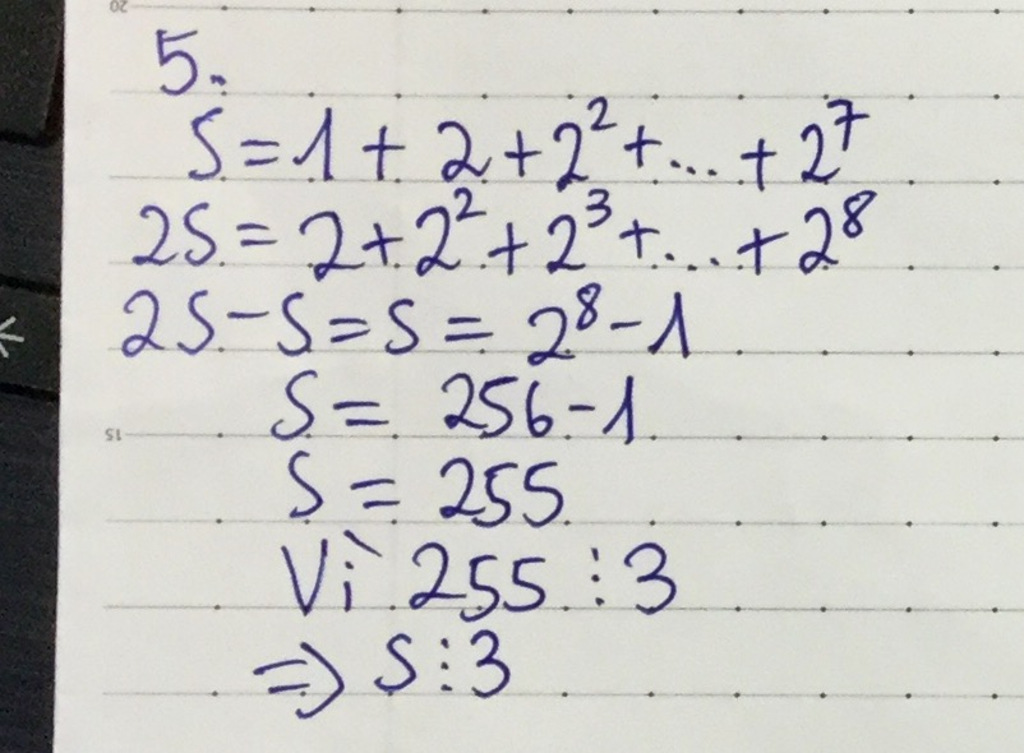 20
5.
S = 1 + 2 + 2² + ... + 2⁷
2S = 2 + 2² + 2³ + ... + 2⁸
2S - S = S = 2⁸ - 1
S = 256 - 1
15
S = 255
Vì 255 ⋮ 3
=> S ⋮ 3